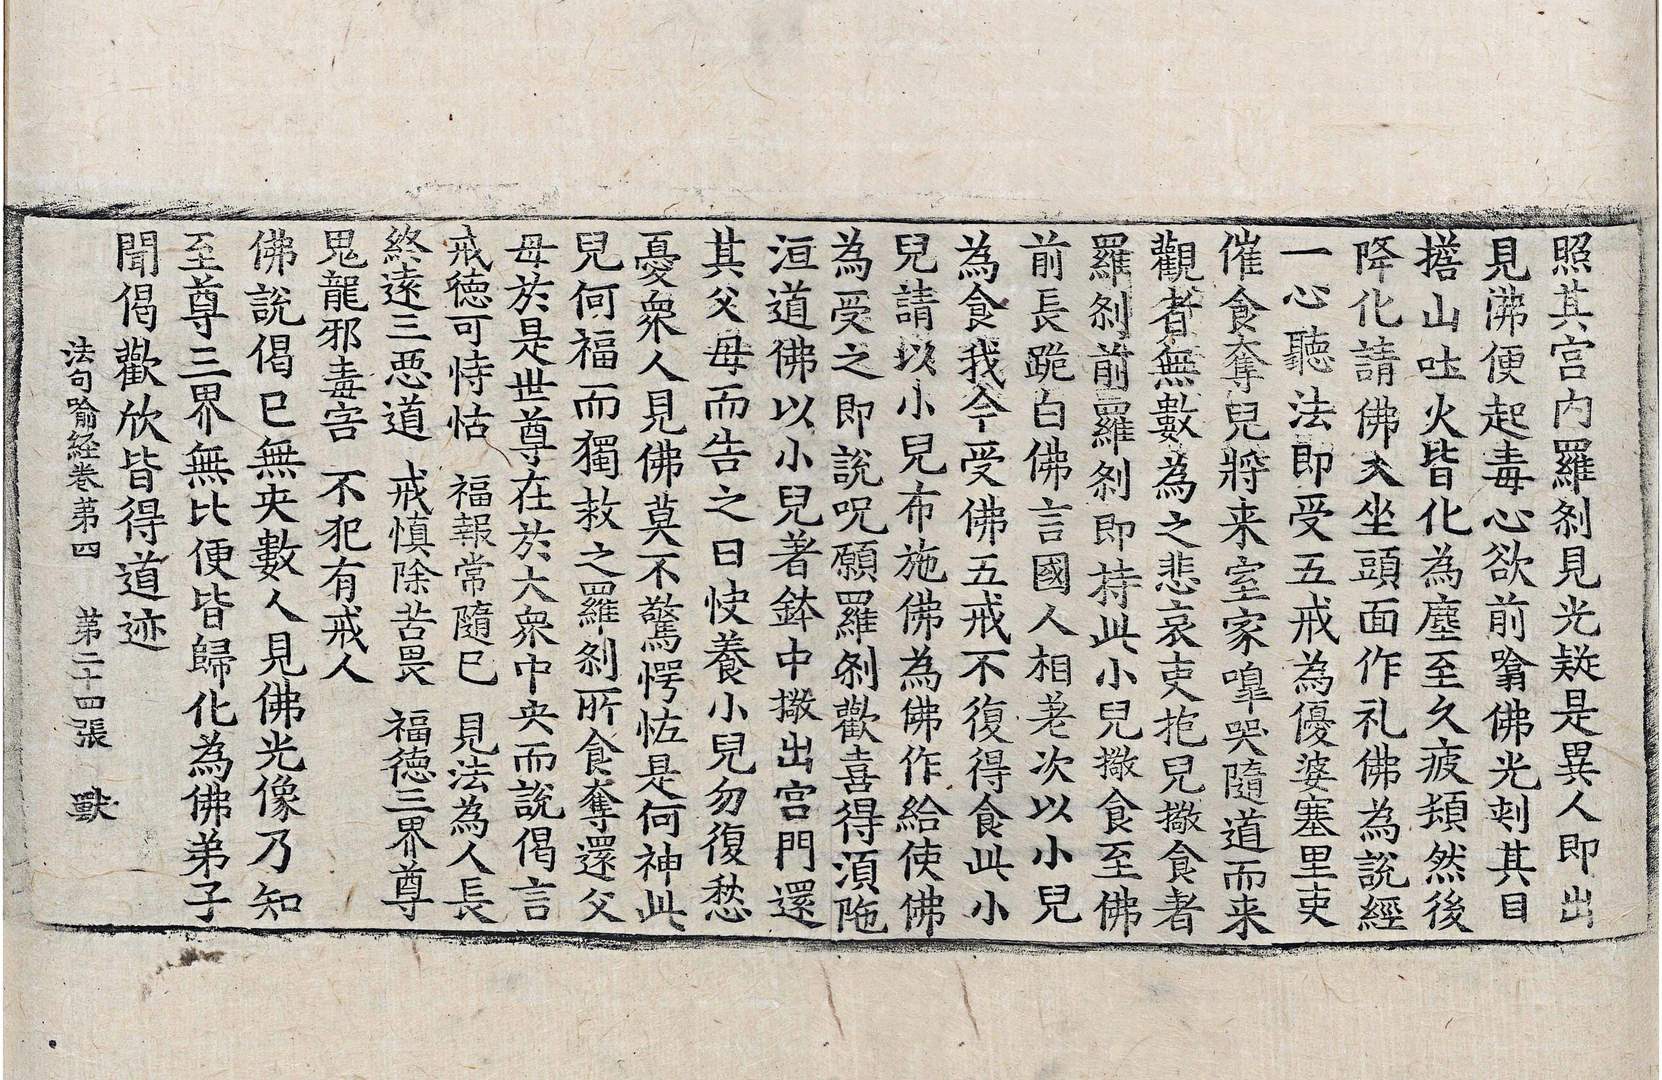 照其宮內羅刹見光疑是異人即出
見沸便起毒心欲前噏佛光刺其目
擔山吐火皆化為塵至久疲頽然後
降化請佛入坐頭面作礼佛為說經
一心聽法即受五戒為優婆塞里吏
催食奪兒將来室家嘷哭隨道而来
觀者無數為之悲哀吏抱兒擻食者
羅刹前羅刹即持此小兒擻食至佛
前長跪白佛言國人相差次以小兒
為食我今受佛五戒不復得食此小
兒請以小兒布施佛為佛作給使佛
為受之即說呪願羅刹歡喜得湏陁
洹道佛以小兒著鉢中擻出宮門還
其父母而告之曰快養小兒勿復愁
憂衆人見佛莫不驚愕怪是何神此
兒何福而獨救之羅刹所食奪還父
母於是世尊在於大衆中央而說偈言
戒德可恃怙 福報常隨已 見法為人長
終遠三惡道 戒慎除苦畏 福德三界尊
鬼龍邪毒害 不犯有戒人
佛說偈已無央數人見佛光像乃知
至尊三界無比便皆歸化為佛弟子
聞偈歡欣皆得道迹
法句喻經卷第四 第二十四張 獸